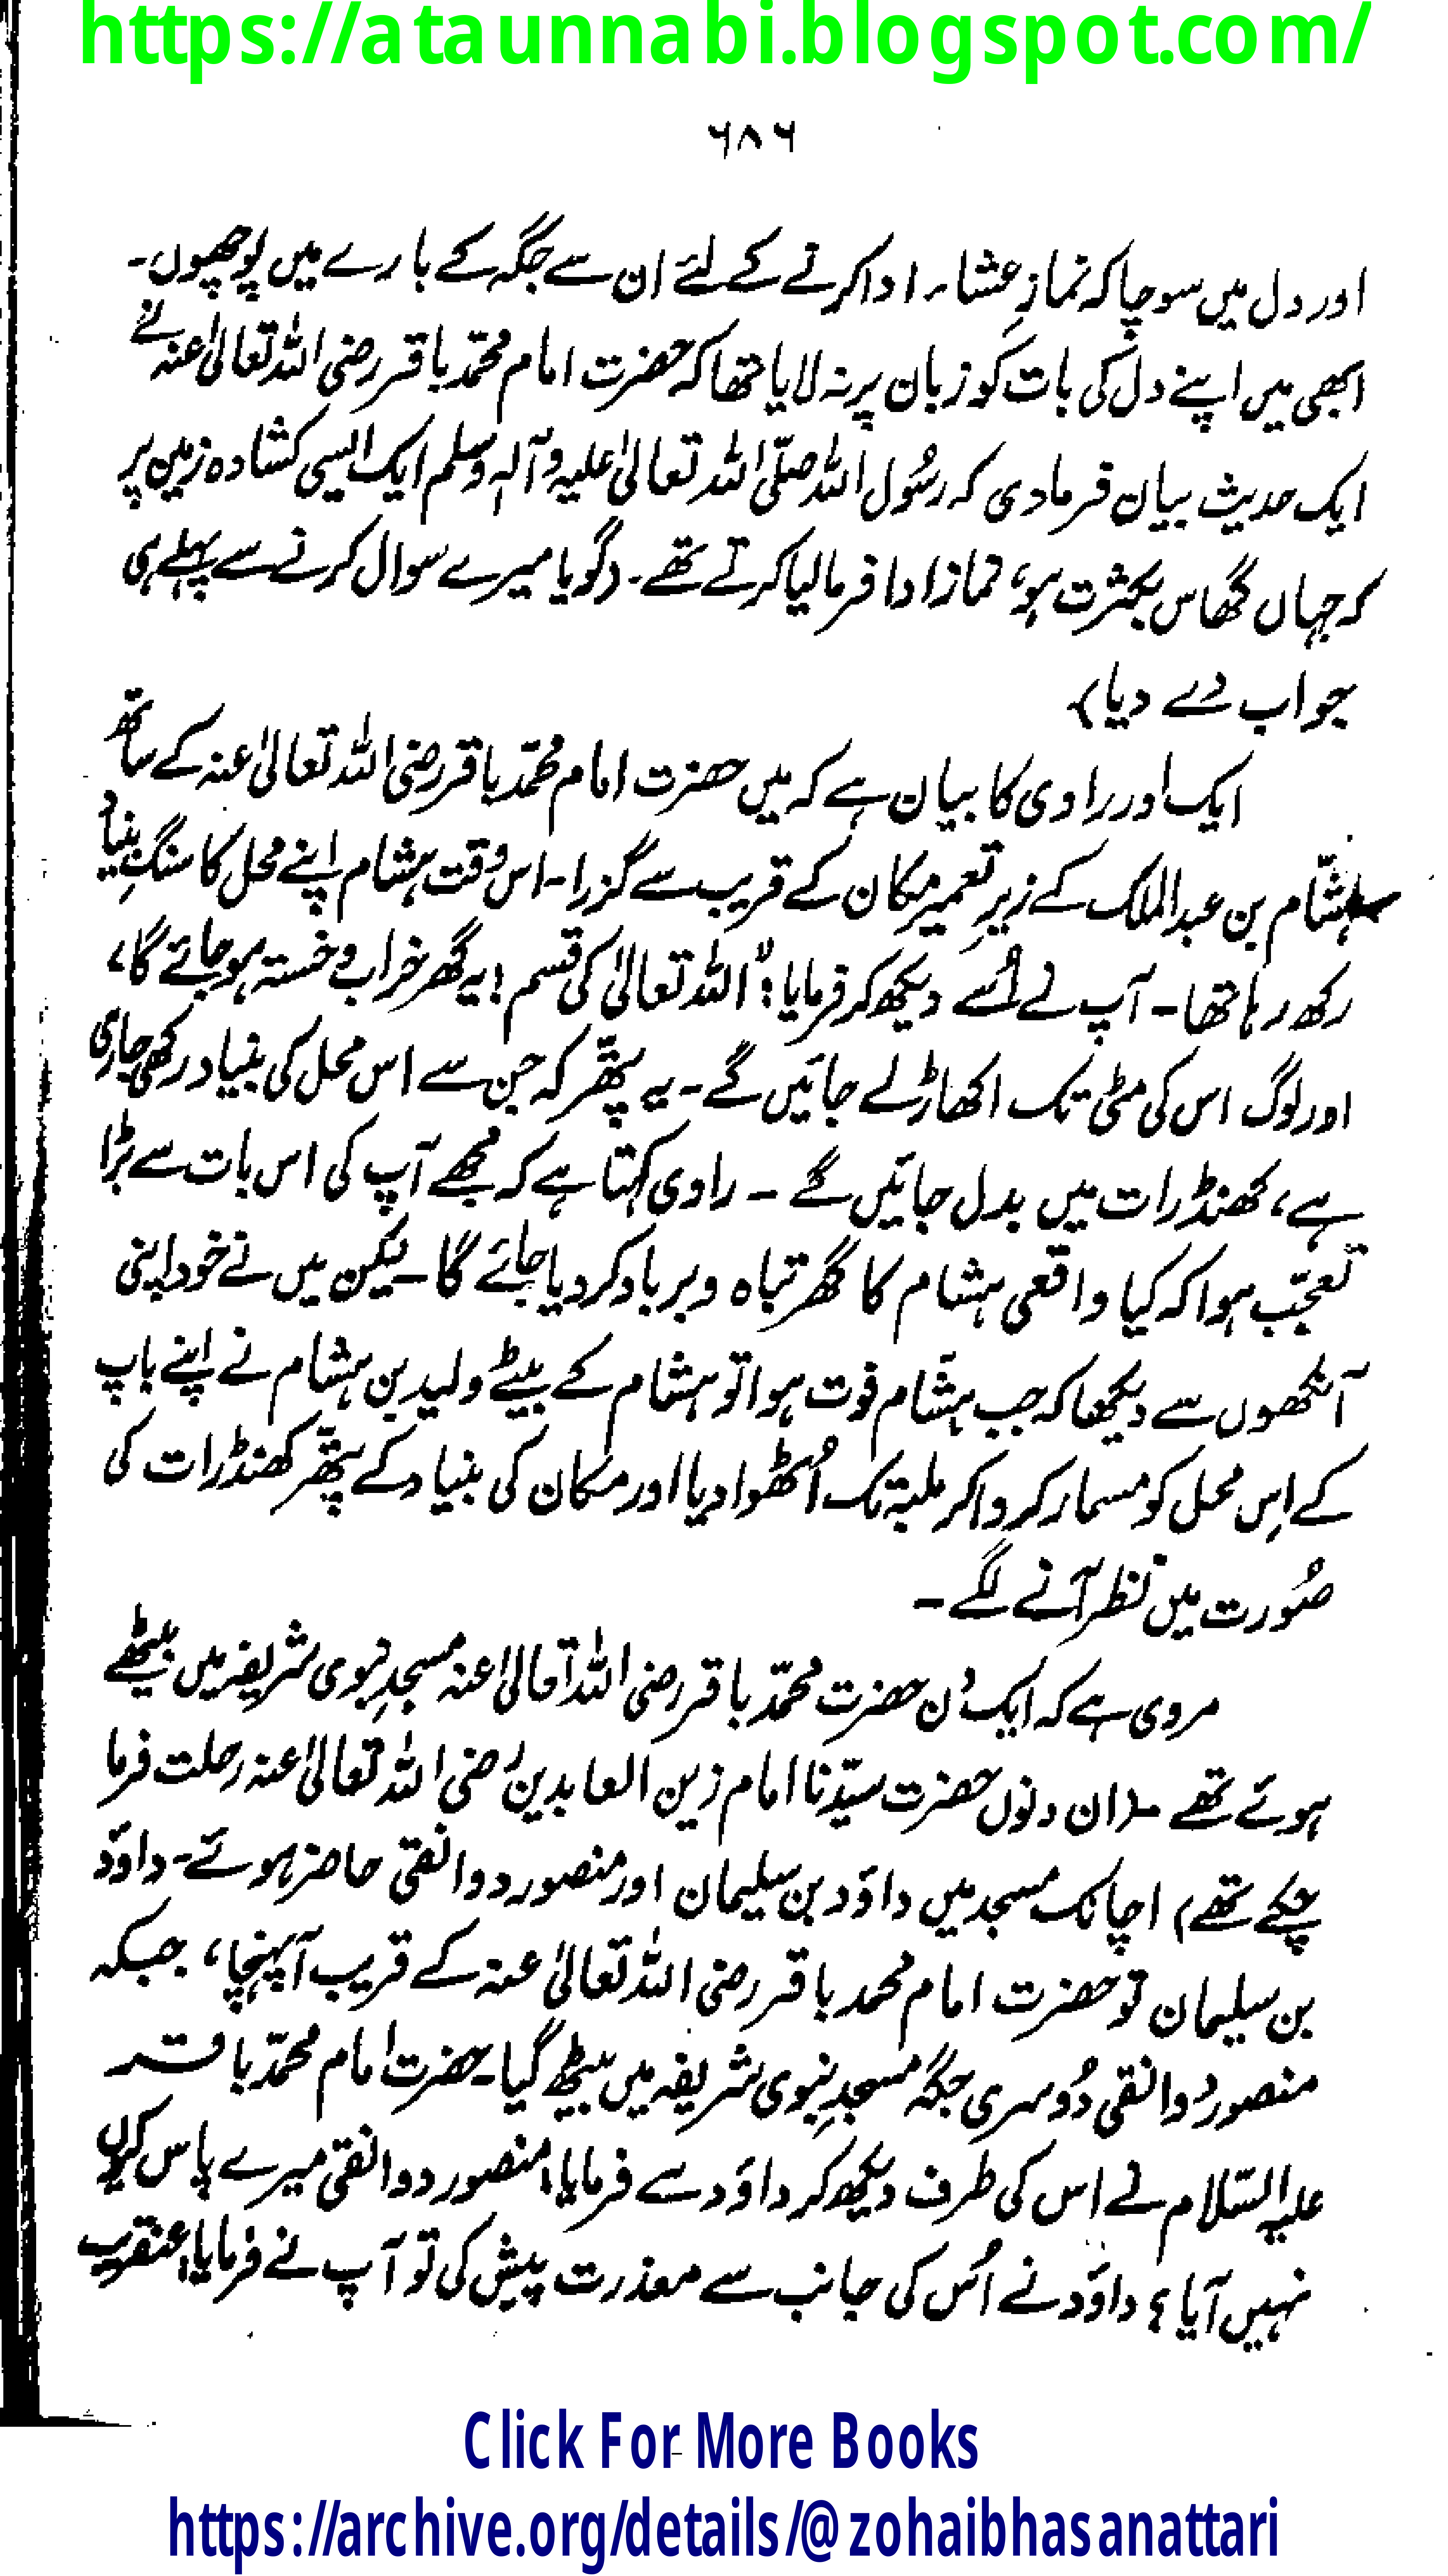 https://ataunnabi.blogspot.com/
۶۸۶
اور دل میں سوچا کہ نمازِ عشاء ادا کرنے کے لئے ان سے جگہ کے بارے میں پوچھوں۔
ابھی میں اپنے دل کی بات کو زبان پر نہ لایا تھا کہ حضرت امام محمّد باقر رضی اللہ تعالیٰ عنہ نے
ایک حدیث بیان فرمادی کہ رسُول اللہ صلّی اللہ تعالیٰ علیہ وآلہٖ وسلم ایک ایسی کشادہ زمین پر
کہ جہاں گھاس بکثرت ہو، نماز ادا فرما لیا کرتے تھے۔ (گویا میرے سوال کرنے سے پہلے ہی
جواب دے دیا)
ایک اور راوی کا بیان ہے کہ میں حضرت امام محمّد باقر رضی اللہ تعالیٰ عنہ کے ساتھ
ہشّام بن عبدالملک کے زیرِ تعمیر مکان کے قریب سے گزرا۔ اس وقت ہشام اپنے محل کا سنگِ بنیاد
رکھ رہا تھا۔ آپ نے اُسے دیکھ کر فرمایا: "اللہ تعالیٰ کی قسم! یہ گھر خراب و خستہ ہو جائے گا،
اور لوگ اس کی مٹی تک اکھاڑ لے جائیں گے۔ یہ پتھّر کہ جن سے اس محل کی بنیاد رکھی جا رہی
ہے، کھنڈرات میں بدل جائیں گے ۔ راوی کہتا ہے کہ مجھے آپ کی اس بات سے بڑا
تعجّب ہوا کہ کیا واقعی ہشام کا گھر تباہ و برباد کر دیا جائے گا۔ لیکن میں نے خود اپنی
آنکھوں سے دیکھا کہ جب ہشّام فوت ہوا تو ہشام کے بیٹے ولید بن ہشام نے اپنے باپ
کے اِس محل کو مسمار کروا کر ملبہ تک اُٹھوا دیا اور مکان کی بنیاد کے پتھّر کھنڈرات کی
صُورت میں نظر آنے لگے ۔
مروی ہے کہ ایک دن حضرت محمّد باقر رضی اللہ تعالیٰ عنہ مسجدِ نبوی شریف میں بیٹھے
ہوئے تھے ۔ (ان دنوں حضرت سیّدنا امام زین العابدین رضی اللہ تعالیٰ عنہ رحلت فرما
چکے تھے) اچانک مسجد میں داؤد بن سلیمان اور منصور دوانقی حاضر ہوئے۔ داؤد
بن سلیمان تو حضرت امام محمد باقر رضی اللہ تعالیٰ عنہ کے قریب آ پہنچا، جبکہ
منصور دوانقی دُوسری جگہ مسجدِ نبوی شریف میں بیٹھ گیا۔ حضرت امام محمّد باقر
علیہ السّلام نے اس کی طرف دیکھ کر داؤد سے فرمایا: منصور دوانقی میرے پاس کیوں
نہیں آیا؟ داؤد نے اُس کی جانب سے معذرت پیش کی تو آپ نے فرمایا: عنقریب
Click For More Books
https://archive.org/details/@zohaibhasanattari